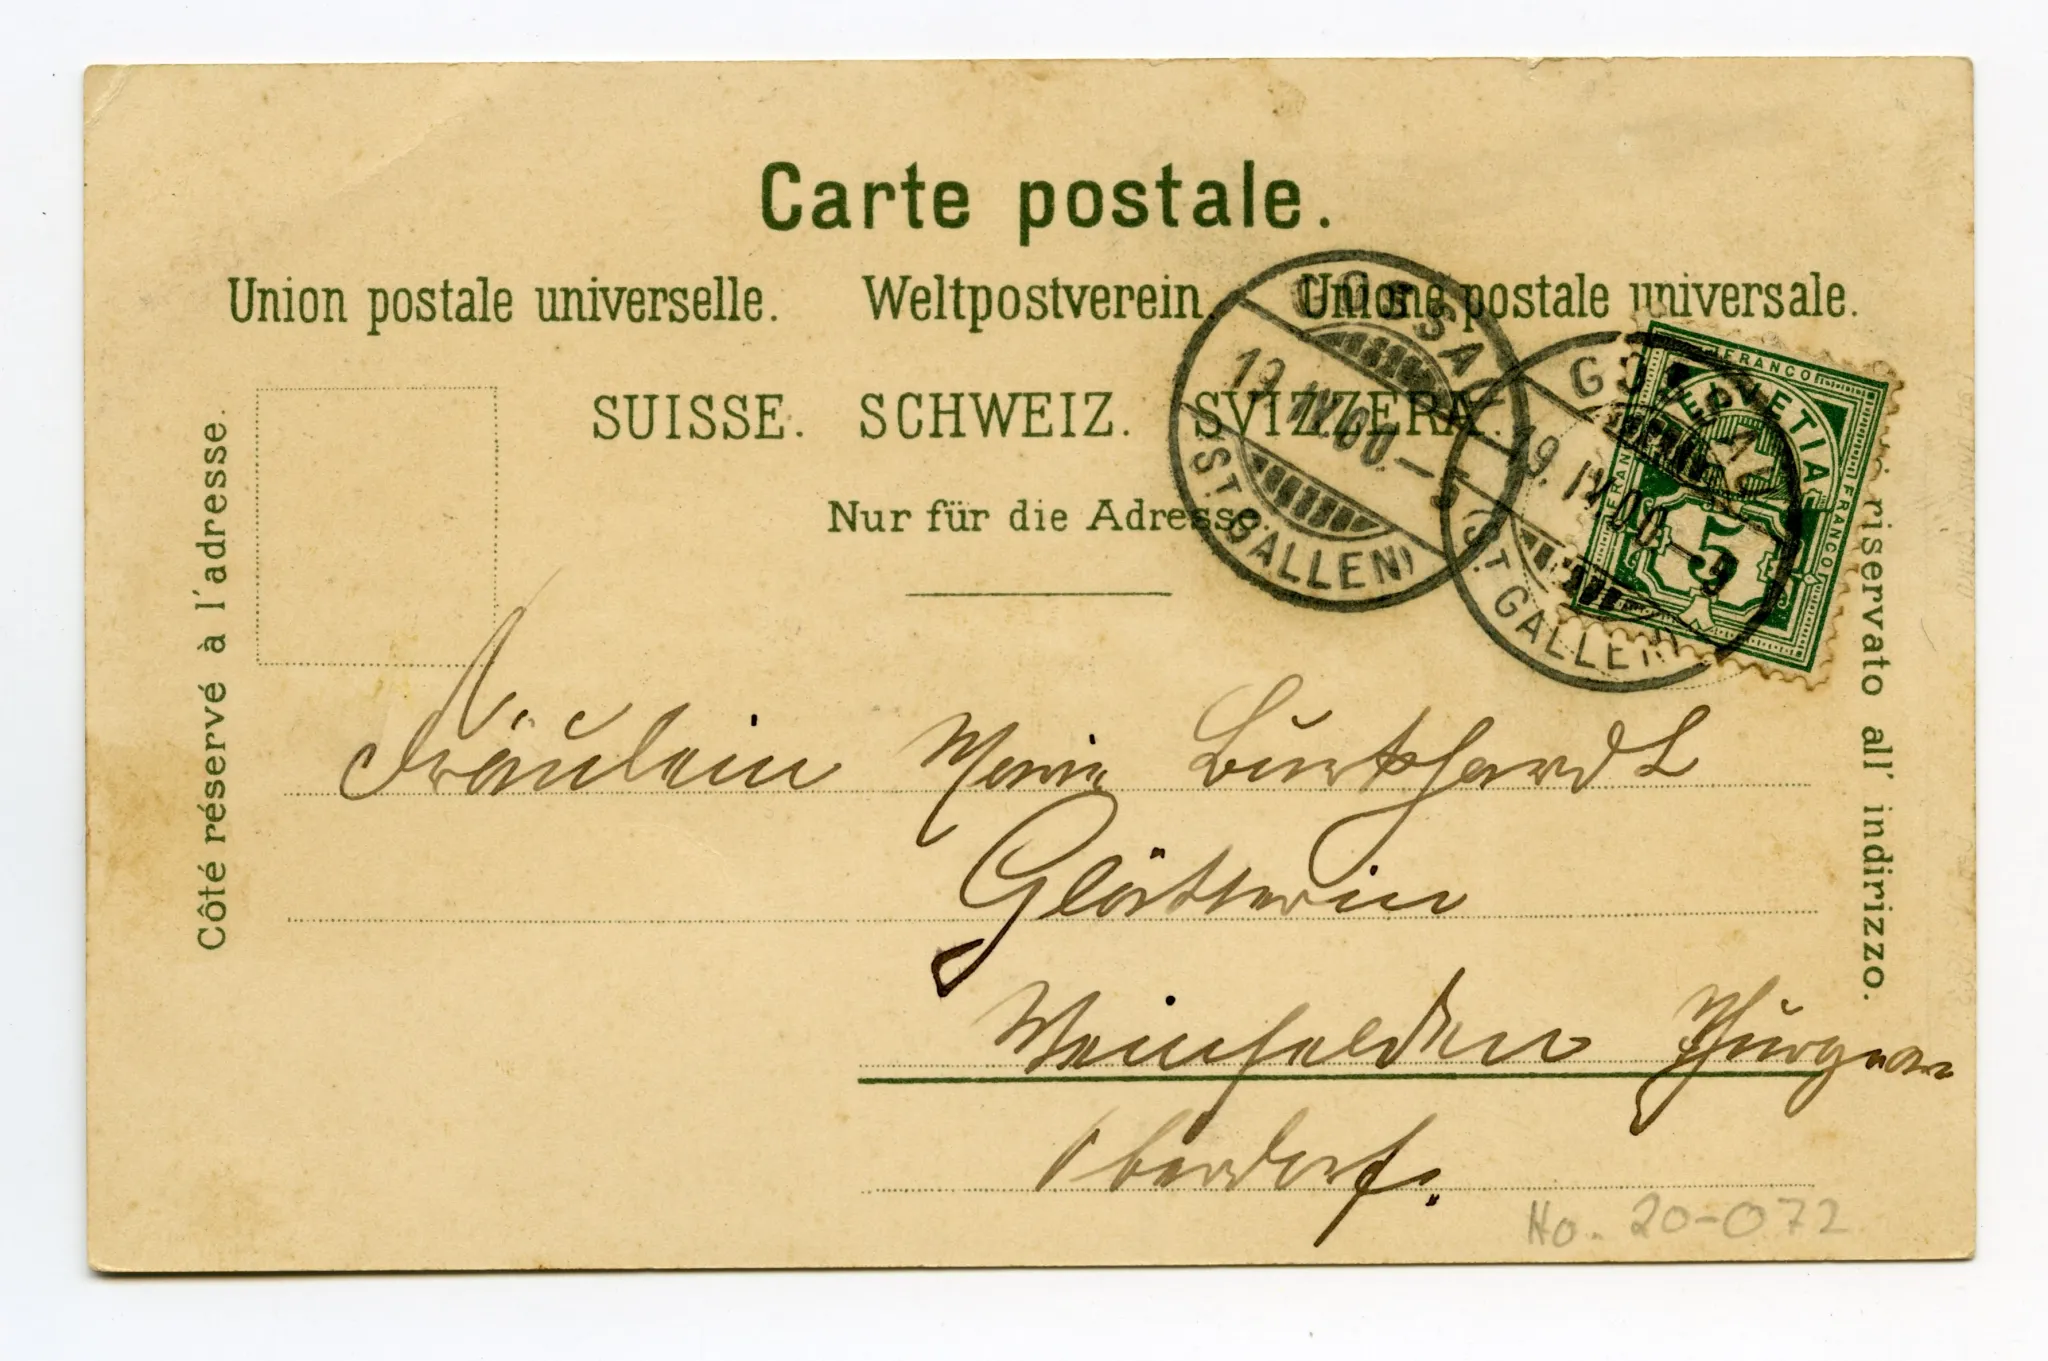 Carte postale.
Union postale universelle. Weltpostverein. Unione postale universale.
SUISSE. SCHWEIZ. SVIZZERA.
Nur für die Adresse.
Côté réservé à l'adresse.
riservato all' indirizzo.
GOSSAU
19.IV.00.–5
(ST. GALLEN)
GOSSAU
19.IV.00.–5
(ST. GALLEN)
FRANCO
HELVETIA
FRANCO
FRANCO
5
Fräulein Marie Burkhardt
Glätterin
Weinfelden Thurgau
Oberdorf.
Ho. 20-072